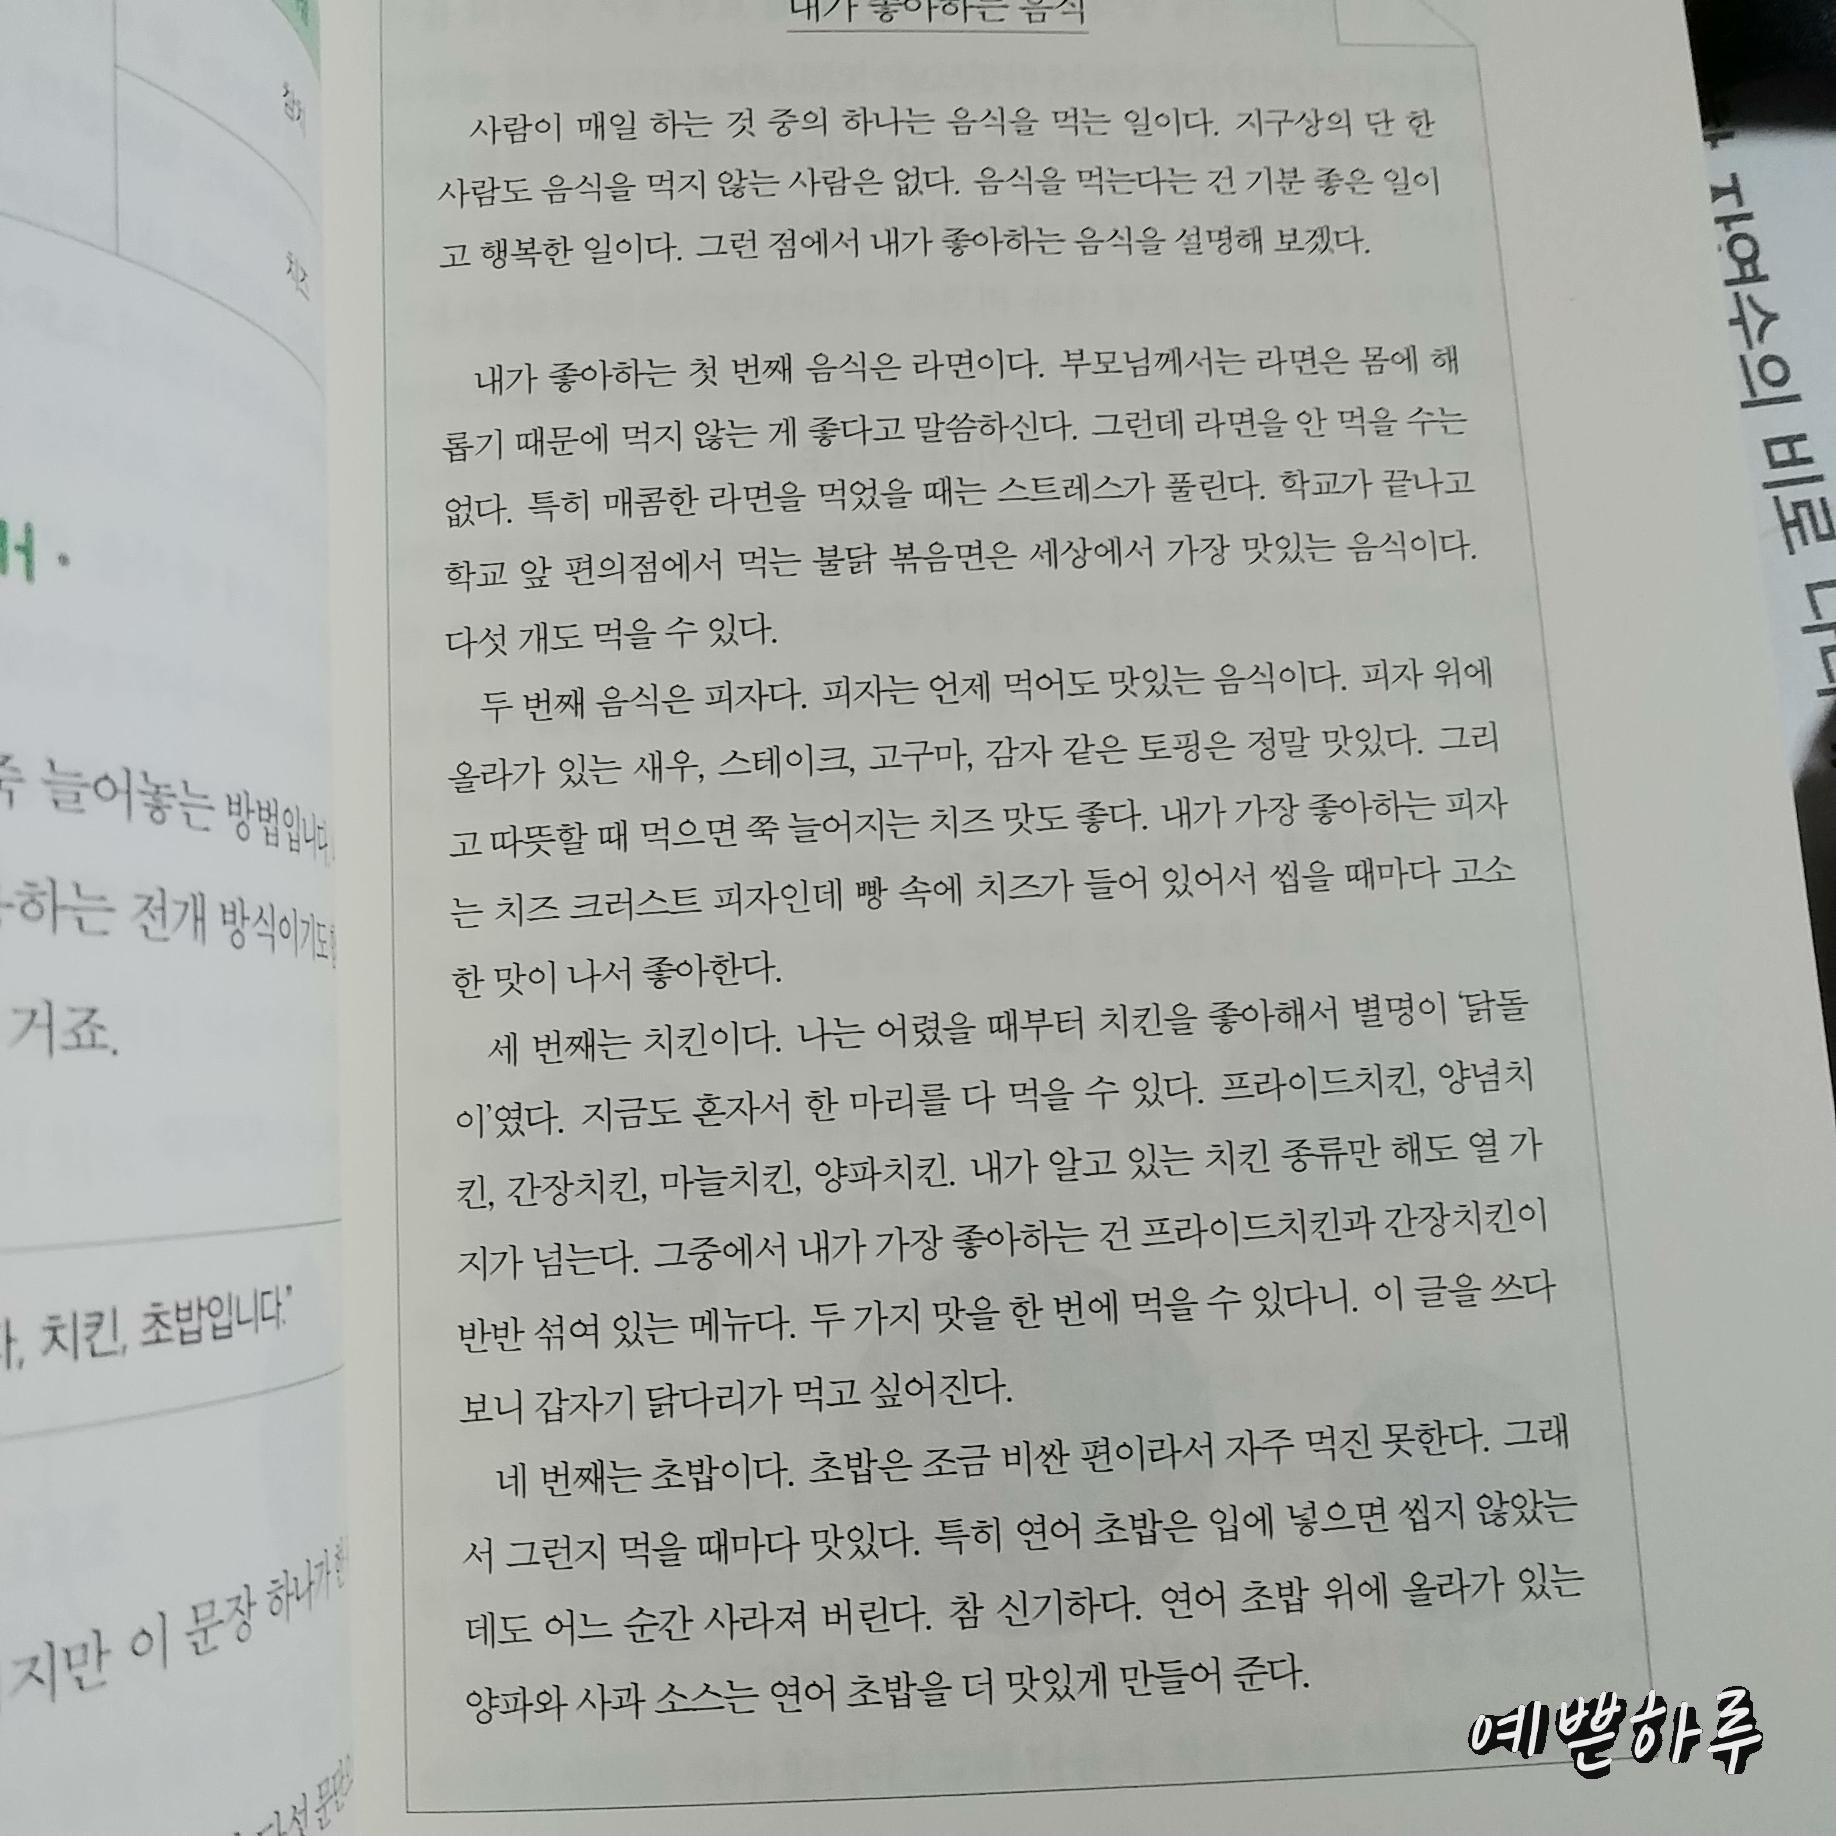 내가 좋아하는 음식
사람이 매일 하는 것 중의 하나는 음식을 먹는 일이다. 지구상의 단 한
사람도 음식을 먹지 않는 사람은 없다. 음식을 먹는다는 건 기분 좋은 일이
고 행복한 일이다. 그런 점에서 내가 좋아하는 음식을 설명해 보겠다.
내가 좋아하는 첫 번째 음식은 라면이다. 부모님께서는 라면은 몸에 해
롭기 때문에 먹지 않는 게 좋다고 말씀하신다. 그런데 라면을 안 먹을 수는
없다. 특히 매콤한 라면을 먹었을 때는 스트레스가 풀린다. 학교가 끝나고
학교 앞 편의점에서 먹는 불닭 볶음면은 세상에서 가장 맛있는 음식이다.
다섯 개도 먹을 수 있다.
두 번째 음식은 피자다. 피자는 언제 먹어도 맛있는 음식이다. 피자 위에
올라가 있는 새우, 스테이크, 고구마, 감자 같은 토핑은 정말 맛있다. 그리
고 따뜻할 때 먹으면 쭉 늘어지는 치즈 맛도 좋다. 내가 가장 좋아하는 피자
는 치즈 크러스트 피자인데 빵 속에 치즈가 들어 있어서 씹을 때마다 고소
한 맛이 나서 좋아한다.
세 번째는 치킨이다. 나는 어렸을 때부터 치킨을 좋아해서 별명이 ‘닭돌
이’였다. 지금도 혼자서 한 마리를 다 먹을 수 있다. 프라이드치킨, 양념치
킨, 간장치킨, 마늘치킨, 양파치킨. 내가 알고 있는 치킨 종류만 해도 열 가
지가 넘는다. 그중에서 내가 가장 좋아하는 건 프라이드치킨과 간장치킨이
반반 섞여 있는 메뉴다. 두 가지 맛을 한 번에 먹을 수 있다니. 이 글을 쓰다
보니 갑자기 닭다리가 먹고 싶어진다.
네 번째는 초밥이다. 초밥은 조금 비싼 편이라서 자주 먹진 못한다. 그래
서 그런지 먹을 때마다 맛있다. 특히 연어 초밥은 입에 넣으면 씹지 않았는
데도 어느 순간 사라져 버린다. 참 신기하다. 연어 초밥 위에 올라가 있는
양파와 사과 소스는 연어 초밥을 더 맛있게 만들어 준다.
치즈
늘어놓는 방법입니다.
하는 전개 방식이기도
거죠.
치킨, 초밥입니다.”
지만 이 문장 하나가
다섯 문단으
자연수의 비로
예쁜하루